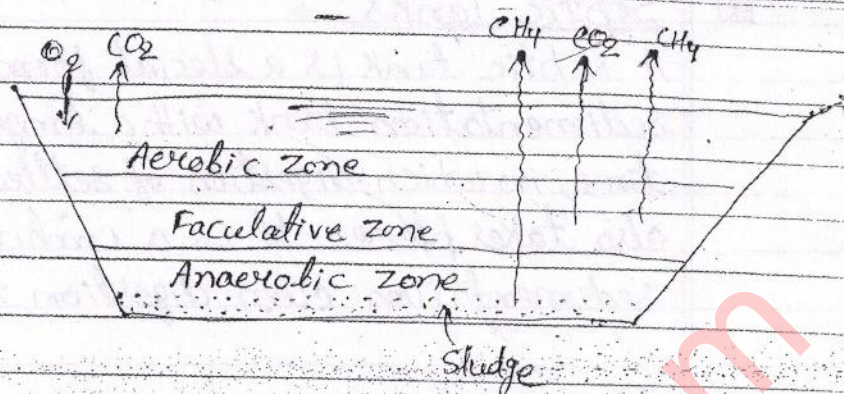 O2 CO2 CH4 CO2 CH4
Aerobic zone
Faculative zone
Anaerobic zone
Sludge
m